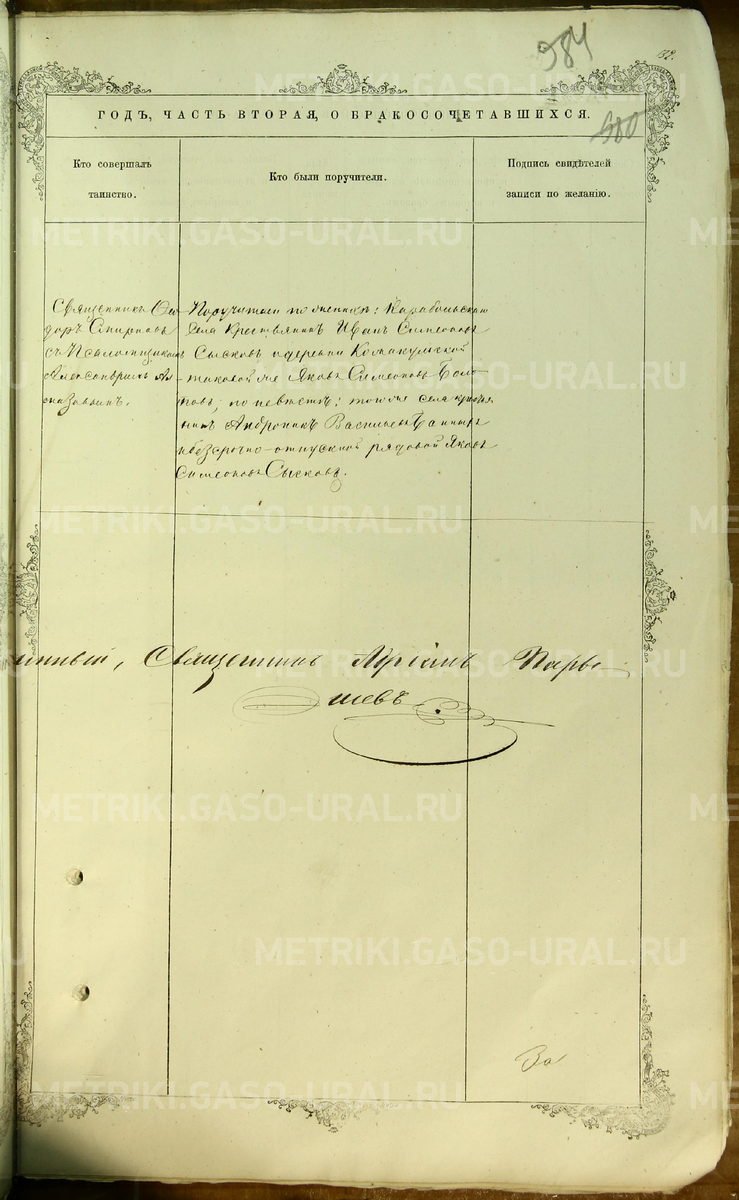 984
132.
ГОДЪ, ЧАСТЬ ВТОРАЯ, О БРАКОСОЧЕТАВШИХСЯ.
580
Кто совершалъ
таинство.
Кто были поручители.
Подпись свидѣтелей
записи по желанію.
Священникъ Ѳео
доръ Смирновъ
съ Псаломщикомъ
Александромъ
Поручители по женихѣ: Карабольскаго
села Крестьянинъ Иванъ Симеоновъ
Сысковъ и деревни
таковой же Яковъ Симеоновъ
по невѣстѣ: того же села крестья
нинъ Андроникъ Васильевъ
и безсрочно-отпускной рядовой Яковъ
Симеоновъ Сысковъ.
Священникъ
шевъ
METRIKI.GASO-URAL.RU